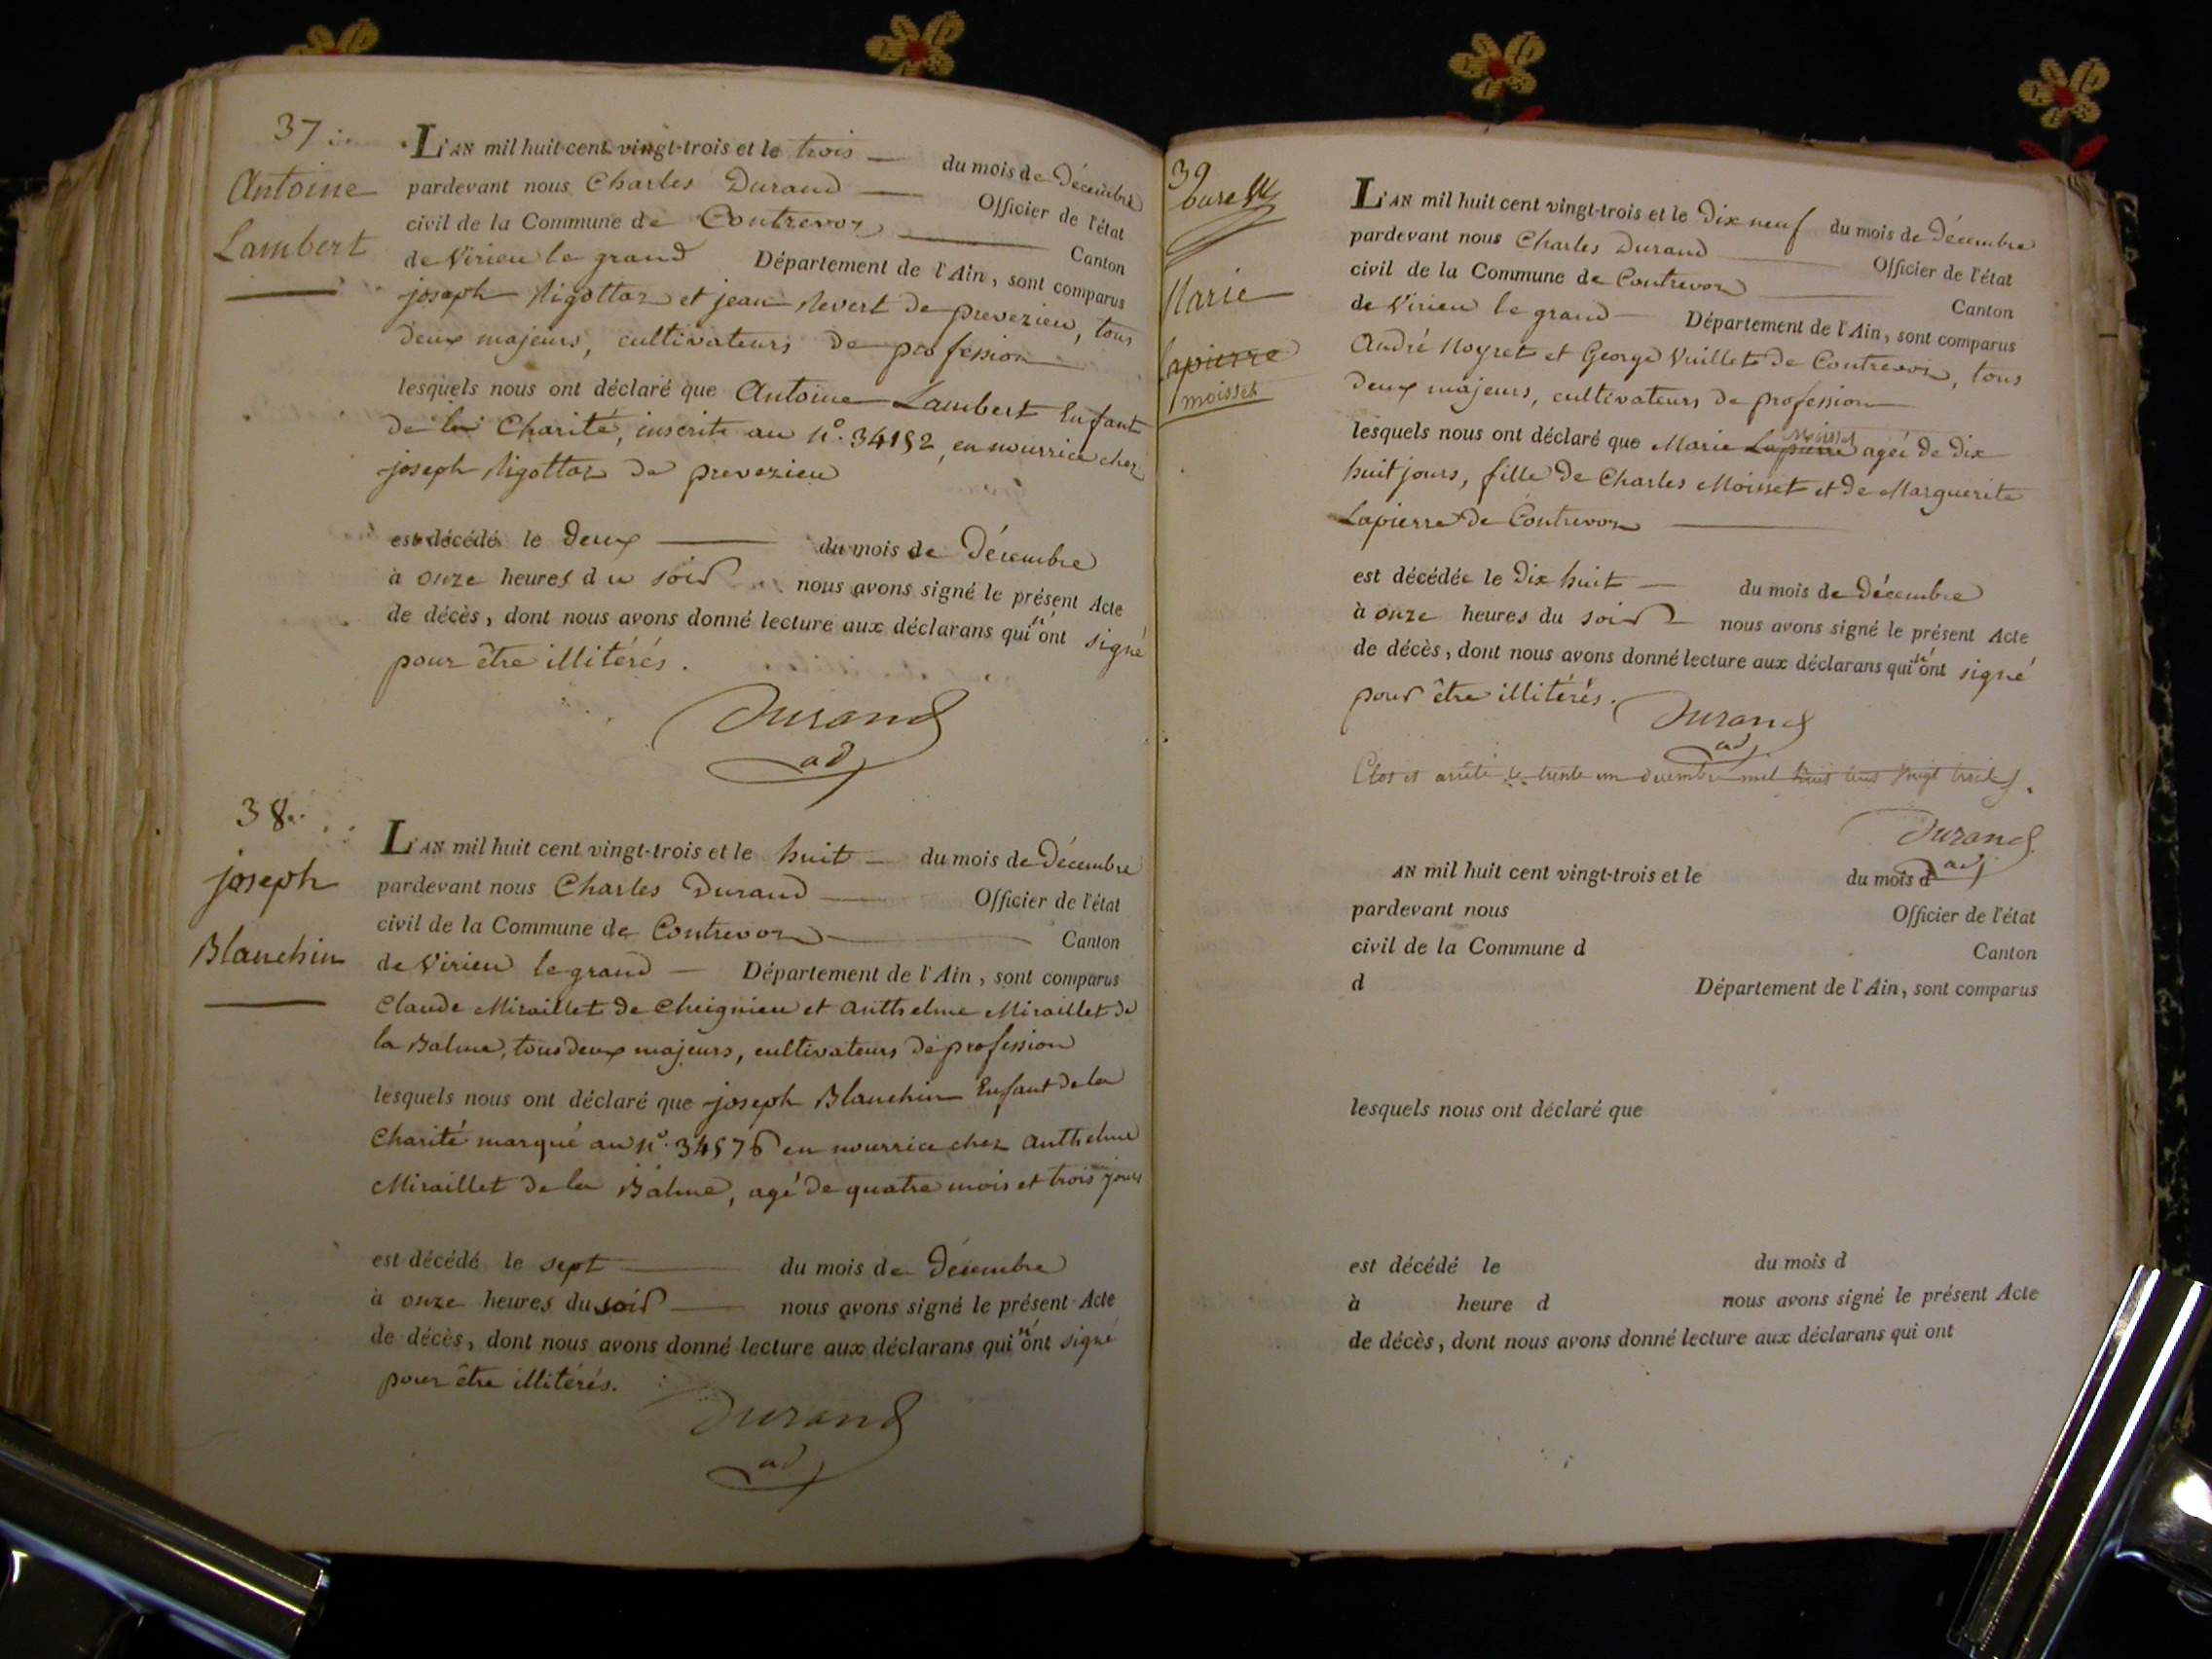 37
Antoine
Lambert
L'AN mil huit cent vingt-trois et le trois du mois de Décembre
pardevant nous Charles Durand Officier de l'état
civil de la Commune de Contrevoz Canton
de Virieu le grand Département de l'Ain, sont comparus
joseph Nigottoz et jean Nevert de prevezieu, tous
deux majeurs, cultivateurs de profession
lesquels nous ont déclaré que Antoine Lambert Enfant
de la Charité, inscrit au n.° 34152, en nourrice chez
joseph Nigottoz de prevezieu
est décédé le deux du mois de Décembre
à onze heures du soir nous avons signé le présent Acte
de décès, dont nous avons donné lecture aux déclarans qui n'ont signé
pour être illitérés.
Durand
adj
38
joseph
Blanchin
L'AN mil huit cent vingt-trois et le huit du mois de Décembre
pardevant nous Charles Durand Officier de l'état
civil de la Commune de Contrevoz Canton
de Virieu le grand Département de l'Ain, sont comparus
Claude Miraillet de Cheignieu et Anthelme Miraillet de
la Balme, tous deux majeurs, cultivateurs de profession
lesquels nous ont déclaré que joseph Blanchin Enfant de la
Charité marqué au n.° 34576 en nourrice chez Anthelme
Miraillet de la Balme, agé de quatre mois et trois jours
est décédé le sept du mois de Décembre
à onze heures du soir nous avons signé le présent Acte
de décès, dont nous avons donné lecture aux déclarans qui n'ont signé
pour être illitérés.
Durand
adj
39
Marie
Lapierre
moisset
L'AN mil huit cent vingt-trois et le Dix neuf du mois de Décembre
pardevant nous Charles Durand Officier de l'état
civil de la Commune de Contrevoz Canton
de Virieu le grand Département de l'Ain, sont comparus
André Noyret et George Vuillet de Contrevoz, tous
deux majeurs, cultivateurs de profession
lesquels nous ont déclaré que Marie Lapierre Moisset agée de dix
huit jours, fille de Charles Moisset et de Marguerite
Lapierre de Contrevoz
est décédée le Dix huit du mois de Décembre
à onze heures du soir nous avons signé le présent Acte
de décès, dont nous avons donné lecture aux déclarans qui n'ont signé
pour être illitérés.
Durand
adj
Clos et arrêté le trente un décembre mil huit cent vingt trois.
Durand
adj
AN mil huit cent vingt-trois et le du mois d
pardevant nous Officier de l'état
civil de la Commune d Canton
d Département de l'Ain, sont comparus
lesquels nous ont déclaré que
est décédé le du mois d
à heure d nous avons signé le présent Acte
de décès, dont nous avons donné lecture aux déclarans qui ont